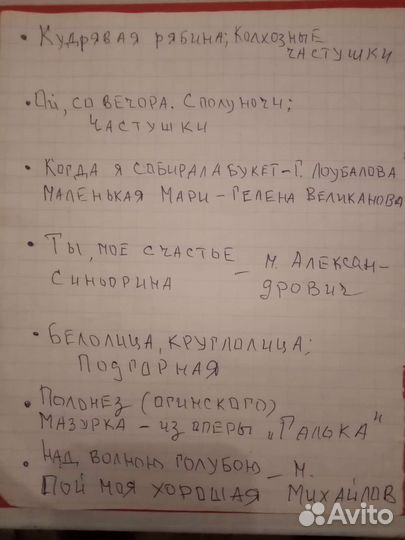 • Кудрявая рябина; Колхозные
частушки
• Ой, со вечора. С полуночи;
Частушки
• Когда я собирала букет - Г. Лоубалова
Маленькая Мари - Гелена Великанова
• Ты, мое счастье
Синьорина - М. Александрович
• Белолица, круглолица;
Подгорная
• Полонез (Огинского)
Мазурка - из оперы "Галька"
• Над волною голубою - М.
Пой моя хорошая Михайлов
Avito